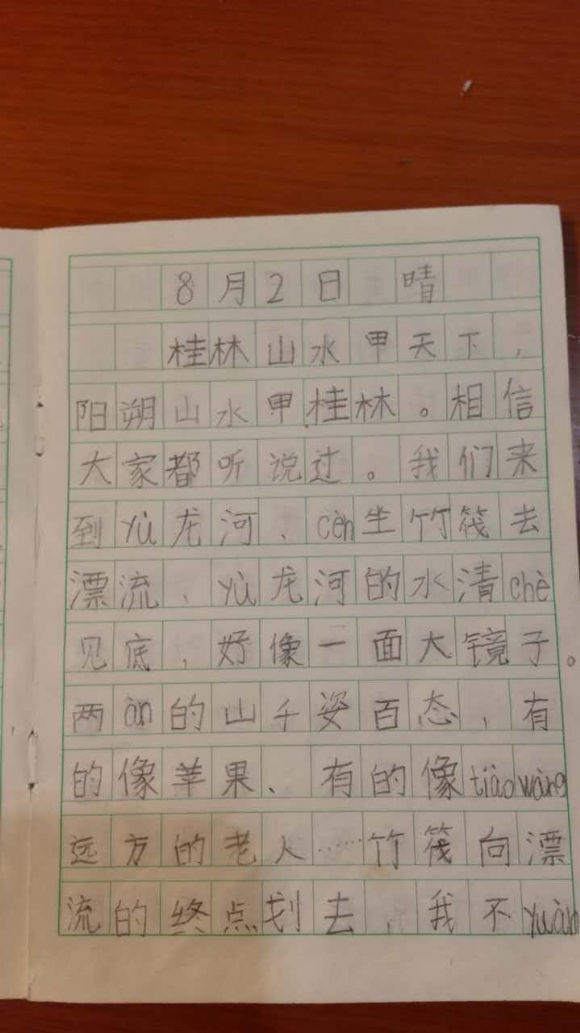 8月2日 晴
桂林山水甲天下，
阳朔山水甲桂林。相信
大家都听说过。我们来
到yù龙河、cèn坐竹筏去
漂流、yù龙河的水清chè
见底，好像一面大镜子。
两àn的山千姿百态，有
的像苹果、有的像tiàowàng
远方的老人……竹筏向漂
流的终点划去，我不yuàn